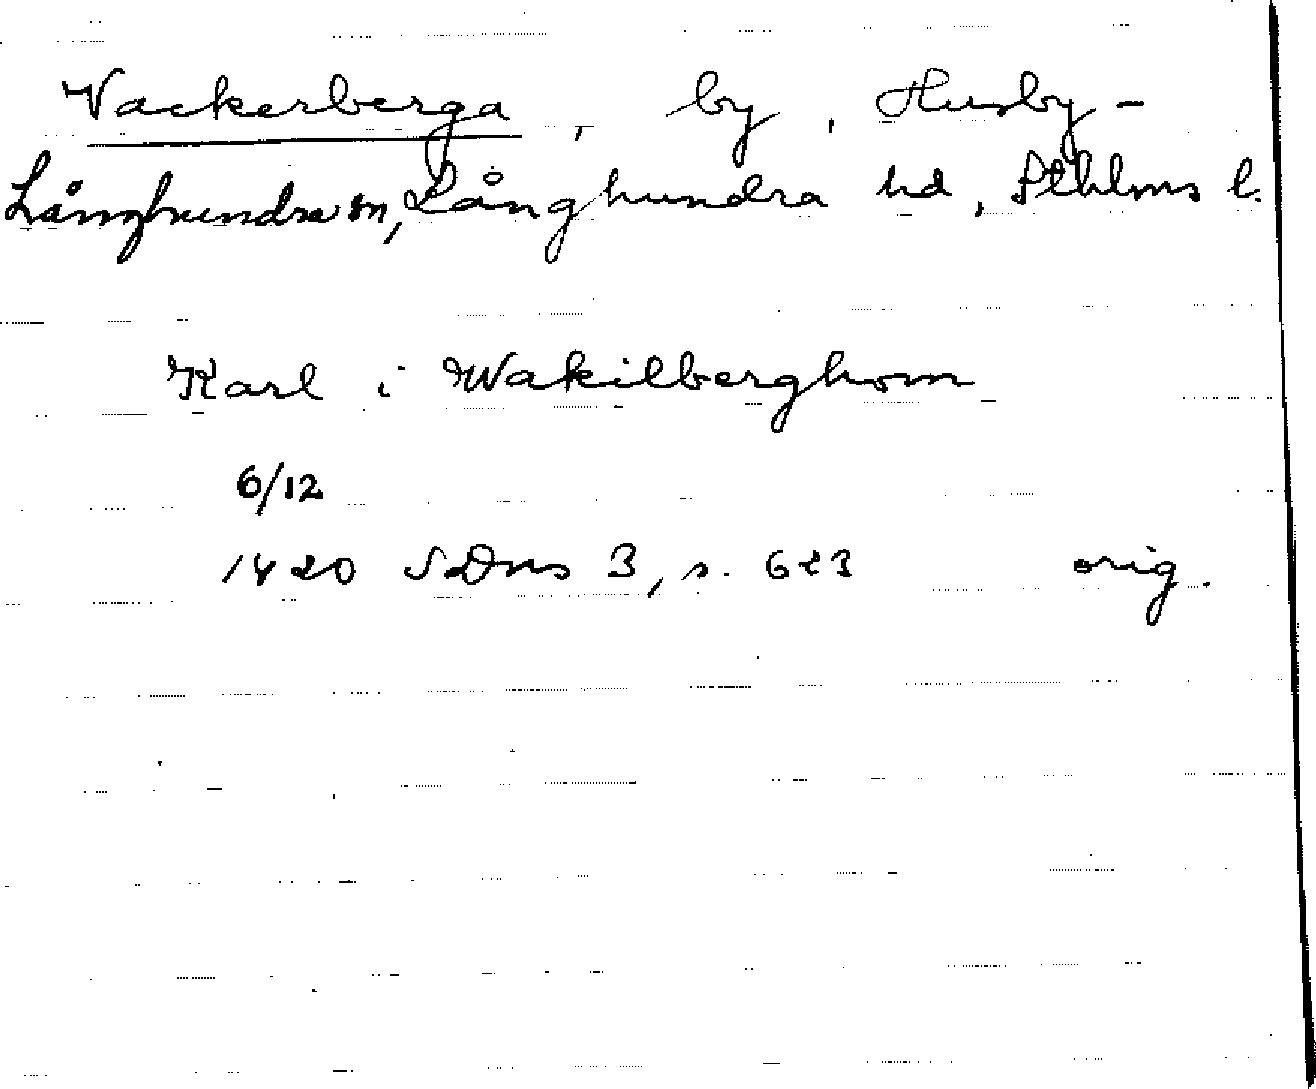 Vackerberga, by, Husby-
Långhundra sn, Långhundra hd, Sthlms l.
Karl i Wakilberghom
6/12
1420 SDns 3, s. 623 orig.